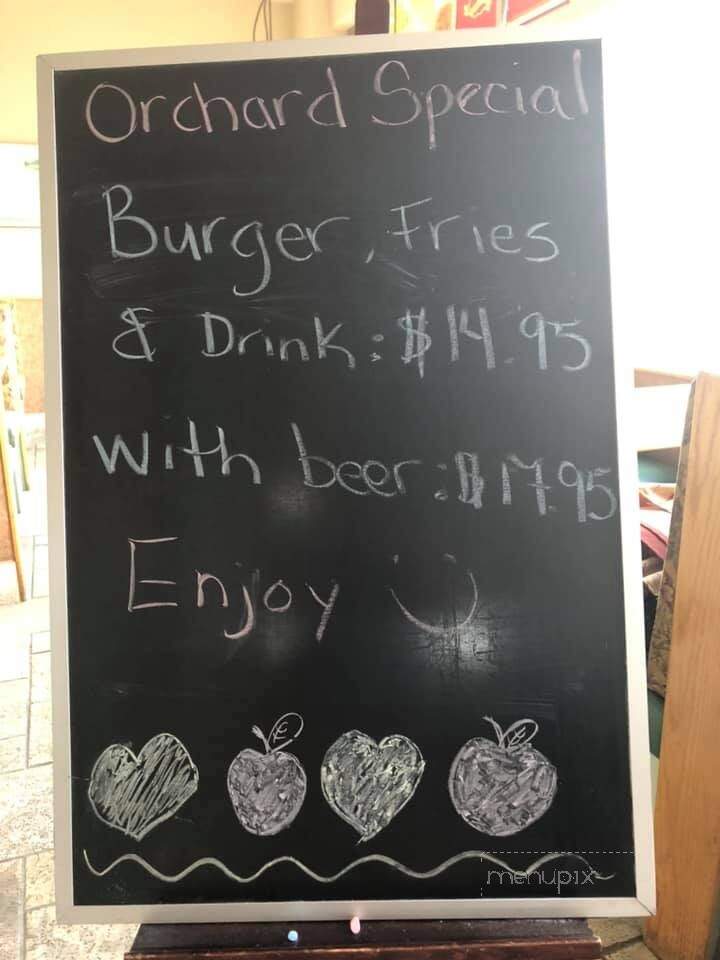 Orchard Special
Burger, Fries
& Drink: $14.95
with beer: $17.95
Enjoy
menupix